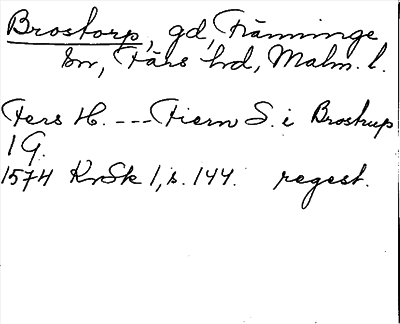 Brostorp, gd, Fränninge
sn, Färs hd, Malm. l.
Fers H. --- Fiern S. i Brostrup
1 G.
1574 KrSk 1, s. 144. regest.